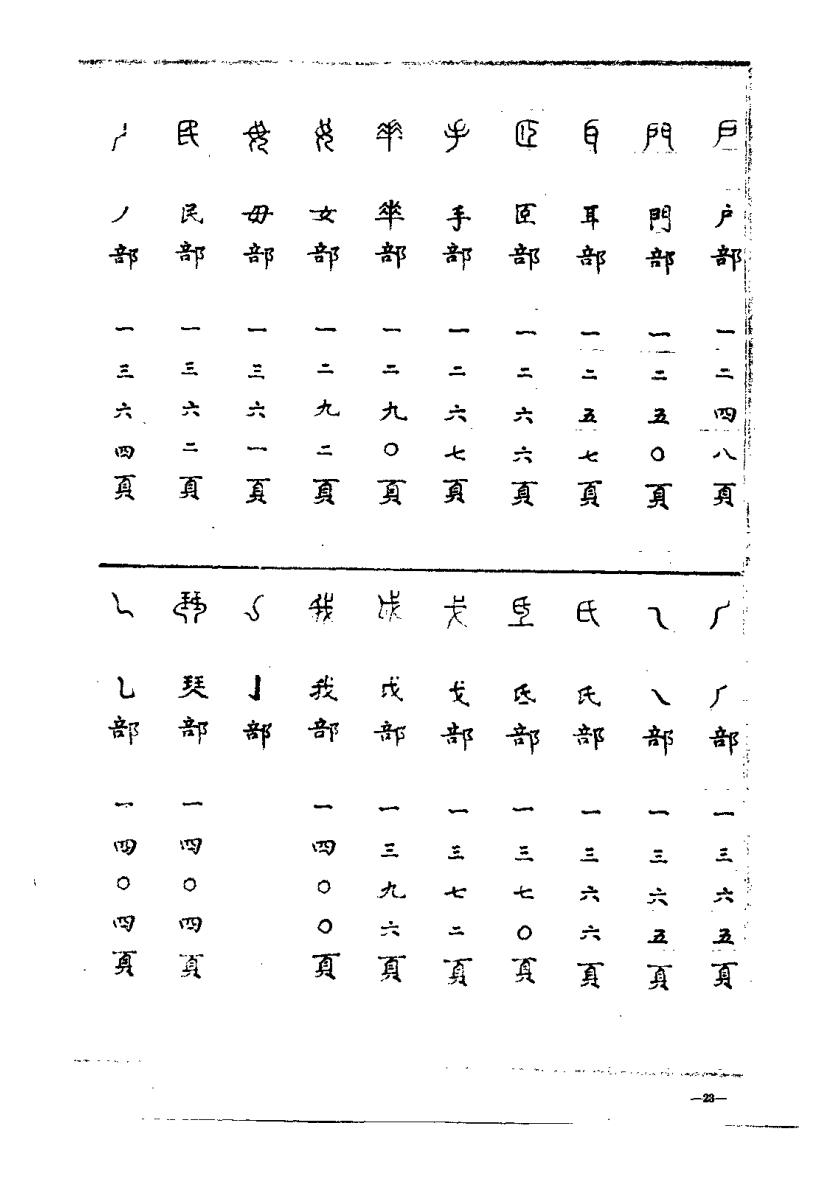 戶 戶部 一二四八頁
門 門部 一二五〇頁
耳 耳部 一二五七頁
𦣞 𦣞部 一二六六頁
手 手部 一二六七頁
𠦬 𠦬部 一二九〇頁
女 女部 一二九二頁
毋 毋部 一三六一頁
民 民部 一三六二頁
丿 丿部 一三六四頁
𠂆 𠂆部 一三六五頁
乁 乁部 一三六五頁
氏 氏部 一三六六頁
氐 氐部 一三七〇頁
戈 戈部 一三七二頁
戉 戉部 一三九六頁
我 我部 一四〇〇頁
亅 亅部
珡 琴部 一四〇四頁
乚 乚部 一四〇四頁
—23—